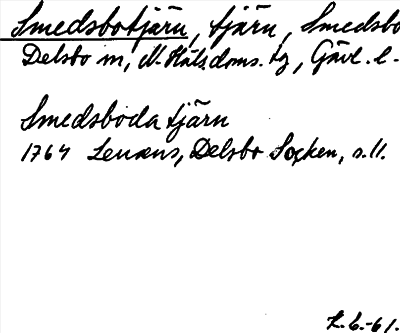 Smedsbotjärn, tjärn, Smedsbo
Delsbo sn, N. Häls. doms. tg, Gävl. l.
Smedsboda tjärn
1764 Lenæus, Delsbo Socken, s. 11.